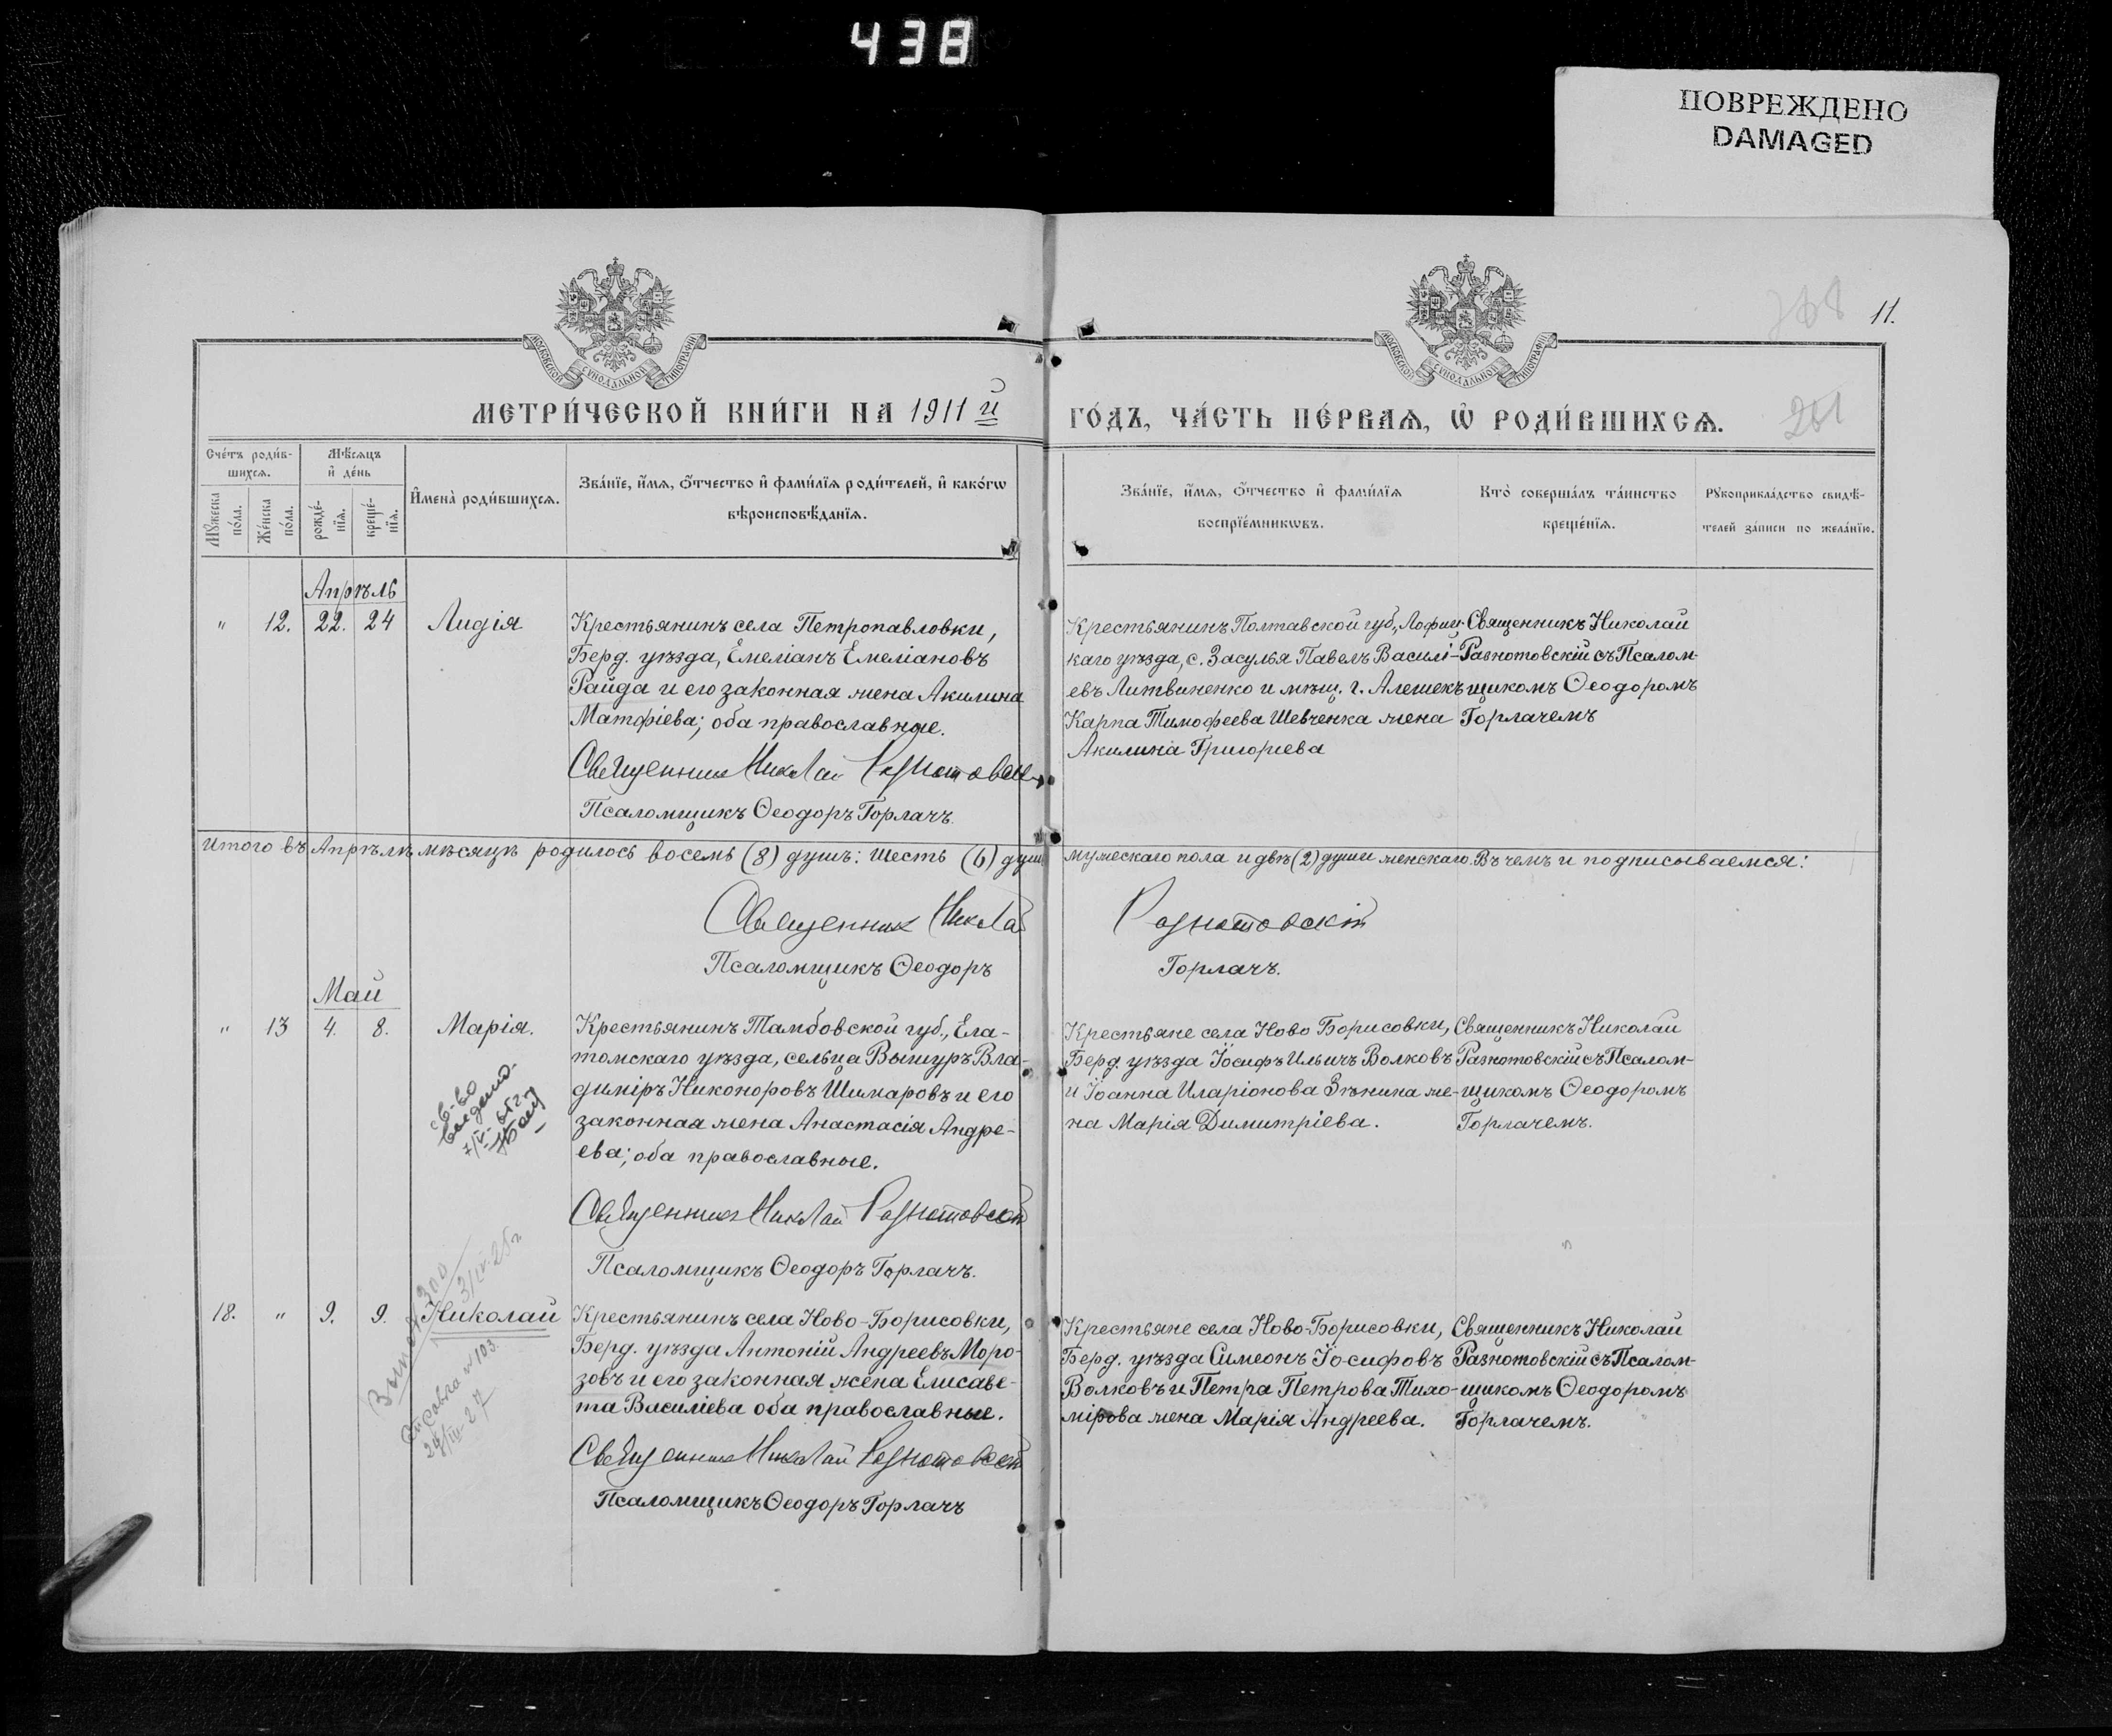 438
ПОВРЕЖДЕНО
DAMAGED
11.
МОСКОВСКОЙ СѴНОДАЛЬНОЙ ТИПОГРАФІИ
МОСКОВСКОЙ СѴНОДАЛЬНОЙ ТИПОГРАФІИ
МЕТРИ́ЧЕСКОЙ КНИ́ГИ НА 1911 й
ГО́ДЪ, ЧА́СТЬ ПЕ́РВАЯ, Ѡ҆ РОДИ́ВШИХСЯ.
201
Сче́тъ роди́в-
шихся.
Мꙋ́жеска по́ла.
Же́нска по́ла.
Мѣ́сяцъ
и҆ де́нь
рожде́-
нїя.
креще́-
нїя.
И҆мена̀ роди́вшихся.
Зва́нїе, и҆́мя, ѻ҆́тчество и҆ фами́лїя роди́телей, и҆ како́гѡ
вѣроисповѣ́данїя.
Зва́нїе, и҆́мя, ѻ҆́тчество и҆ фами́лїя
воспрїе́мникѡвъ.
Кто̀ соверша́лъ та́инство
креще́нїя.
Рꙋкоприкла́дство свидѣ́-
телей за́писи по жела́нїю.
Апрѣль
" 12. 22. 24 Лидія
Крестьянинъ села Петропавловки,
Берд. уѣзда, Емеліанъ Емеліановъ
Райда и его законная жена Акилина
Матфіева; оба православные.
Священникъ Николай Разнотовскій
Псаломщикъ Ѳеодоръ Горлачъ.
Крестьянинъ Полтавской губ., Лофиц-
каго уѣзда, с. Засулья Павелъ Василі-
евъ Литвиненко и мѣщ. г. Алешекъ
Карпа Тимофеева Шевченка жена
Акилина Григорьева
Священникъ Николай
Разнотовскій съ Псалом-
щикомъ Ѳеодоромъ
Горлачемъ
Итого въ Апрѣлѣ мѣсяцѣ родилось восемь (8) душъ: шесть (6) душъ мужескаго пола и двѣ (2) души женскаго. Въ чемъ и подписываемся:
Священникъ Николай Разнотовскій
Псаломщикъ Ѳеодоръ Горлачъ.
Май
" 13 4. 8. Марія.
св-во
выдано
7/V-65г.
Крестьянинъ Тамбовской губ., Ела-
томскаго уѣзда, сельца Вышуръ Вла-
диміръ Никоноровъ Шимаровъ и его
законная жена Анастасія Андре-
ева; оба православные.
Священникъ Николай Разнотовскій
Псаломщикъ Ѳеодоръ Горлачъ.
Крестьяне села Ново Борисовки,
Берд. уѣзда Іосифъ Ильичъ Волковъ
и Іоанна Иларіонова Зѣнина же-
на Марія Димитріева.
Священникъ Николай
Разнотовскій съ Псалом-
щикомъ Ѳеодоромъ
Горлачемъ.
18. " 9. 9. Николай
Выпись 300
3/IV-25г.
№ 103.
24/III-27
Крестьянинъ села Ново-Борисовки,
Берд. уѣзда Антоній Андреевъ Моро-
зовъ и его законная жена Елисаве-
та Василіева оба православные.
Священникъ Николай Разнотовскій
Псаломщикъ Ѳеодоръ Горлачъ
Крестьяне села Ново-Борисовки,
Берд. уѣзда Симеонъ Іосифовъ
Волковъ и Петра Петрова Тихо-
мірова жена Марія Андреева.
Священникъ Николай
Разнотовскій съ Псалом-
щикомъ Ѳеодоромъ
Горлачемъ.